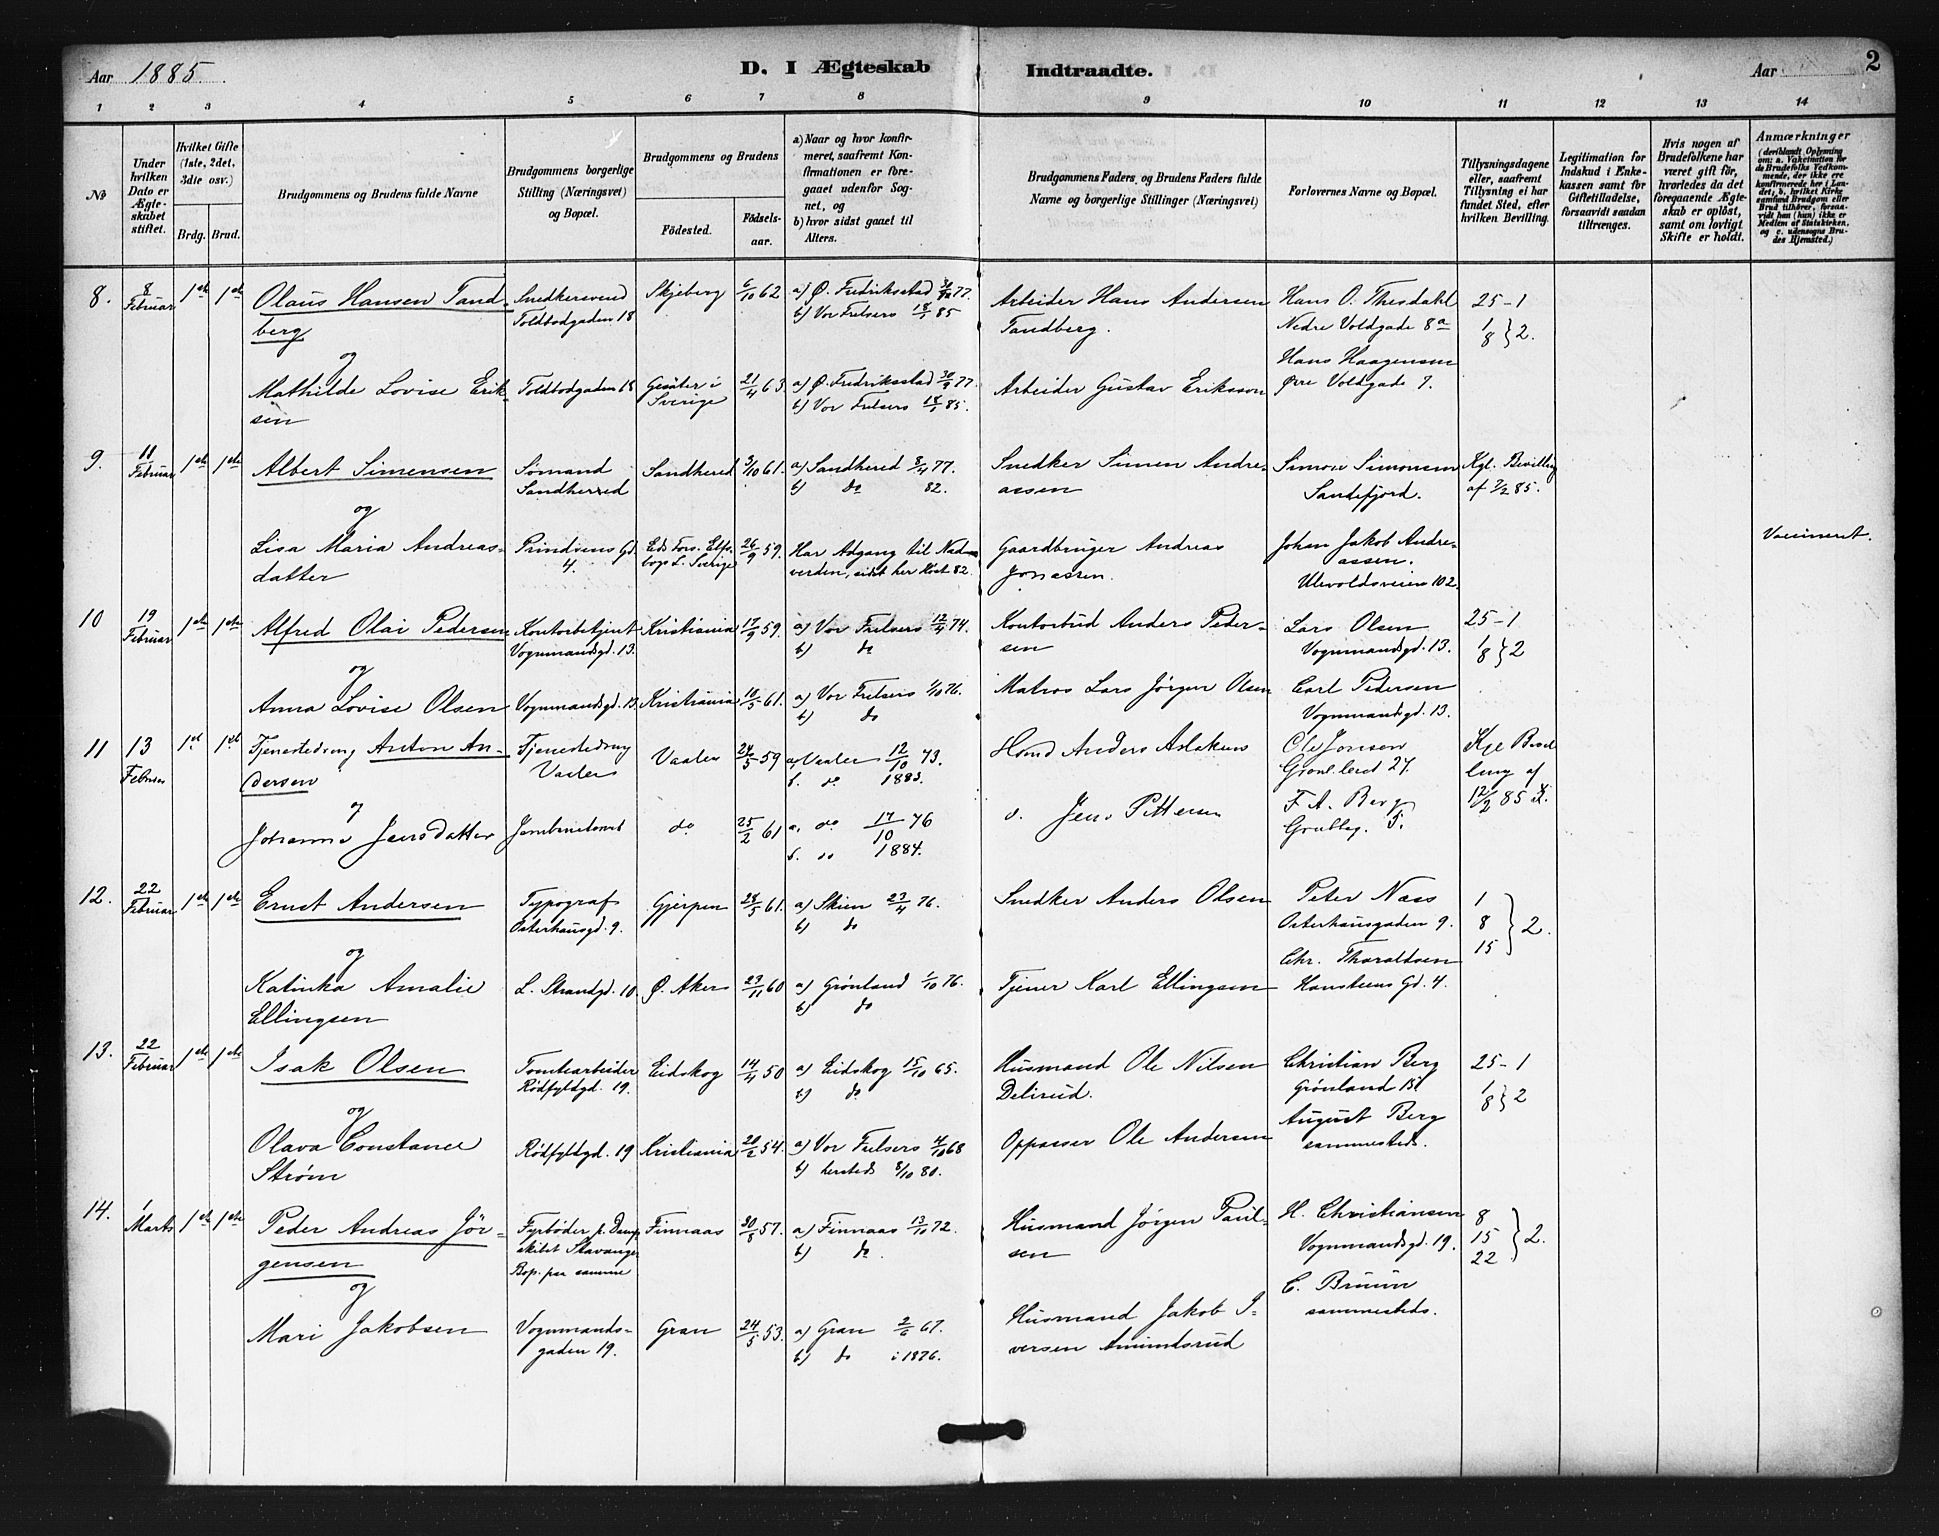 Aar 1885.
D. I Ægteskab Indtraadte.
Aar
2
1 2 3 4 5 6 7 8 9 10 11 12 13 14
No
Under hvilken Dato er Ægteskabet stiftet.
Hvilket Gifte (1ste, 2det, 3die osv.)
Brdg. Brud.
Brudgommens og Brudens fulde Navne
Brudgommens borgerlige Stilling (Næringsvei) og Bopæl.
Brudgommens og Brudens
Födested.
Födselsaar.
a) Naar og hvor konfirmeret, saafremt Konfirmationen er foregaaet udenfor Sognet, og
b) hvor sidst gaaet til Alters.
Brudgommens Faders og Brudens Faders fulde Navne og borgerlige Stillinger (Næringsvei)
Forlovernes Navne og Bopæl.
Tillysningsdagene eller, saafremt Tillysning ei har fundet Sted, efter hvilken Bevilling.
Legitimation for Indskud i Enkekassen samt for Giftetilladelse, forsaavidt saadan tiltrænges.
Hvis nogen af Brudefolkene har været gift för, hvorledes da det foregaaende Ægteskab er oplöst, samt om lovligt Skifte er holdt.
Anmærkninger
(deriblandt Oplysning om: a. Vakcination for de Brudefolks Vedkommende, der ikke ere konfirmerede her i Landet, b. hvilket Kirkesamfund Brudgom eller Brud tilhörer, forsaavidt han (hun) ikke er Medlem af Statskirken, og c. udensogns Brudes Hjemsted.)
8. 8 Februar 1ste 1ste Olaus Hansen Tandberg Snedkersvend Toldbodgaden 18 Skjeberg 6/10 62 a) Ø. Fredriksstad 77. b) Vor Frelsers 18/1 85 Arbeider Hans Andersen Tandberg. Hans O. Thesdahl Nedre Voldgade 8a 25-1 1 8 } 2.
og
Mathilde Lovise Eriksen Toldbodgaden 18 Gesäter i Sverige 21/4 63 a) Ø. Fredriksstad 30/9 77. b) Vor Frelsers 18/1 85. Arbeider Gustav Eriksson Hans Haagensen Øvre Voldgade 9.
9. 11 Februar 1ste 1ste Albert Simensen Sømand Sandherred Sandhered 3/10 61. a) Sandhered 8/4 77. b) do 82. Snedker Simen Andreassen Simon Simonsen Sandefjord. Kgl. Bevilling af 7/2 85.
og
Lisa Maria Andreasdatter Prindsens Gd. 4. Eds Fors. Elfsborgs L. Sverige 26/9 59. Har Adgang til Nadverden, sidst her Høst 82. Gaardbruger Andreas Jonassen. Johan Jakob Andreassen. Ulevoldsveien 102. Vaccineret.
10 19 Februar 1ste 1ste Alfred Olai Pedersen Kontorbetjent Vognmandsgd. 13. Kristiania 17/9 59. a) Vor Frelsers 12/4 74. b) do Kontorbud Anders Pedersen Lars Olsen Vognmandsgd. 13. 25-1 1 8 } 2
og
Anna Lovise Olsen Vognmandsgd. 13. Kristiania 10/5 61. a) Vor Frelsers 1/10 76. b) do Matros Lars Jörgen Olsen Carl Pedersen Vognmandsgd. 13.
11 13 Februar 1st 1st Tjenestedreng Anton Andersen Tjenestedreng Vaaler Vaaler 24/5 59 a. Vaaler 12/10 73. b. do 1883. Anders Aslaksen Ole Jonsen Grønl. leret 27. Kgl Bevilling af 12/2 85
og
Johanne Jensdatter do 25/2 61 a. do 17/10 76 b. do 1884. Jens Pettersen F. A. Berg 5.
12. 22 Februar 1ste 1ste Ernst Andersen Typograf Osterhausgd. 9. Gjerpen 28/5 61. a) Skien 23/4 76. b) do Snedker Anders Olsen Peter Næss Osterhausgaden 9. 1 8 15 } 2.
og
Katinka Amalie Ellingsen L. Strandgd. 10 Ø. Aker 23/11 60 a) Grönland 1/10 76. b) do Tjener Karl Ellingsen Chr. Thoraldsen Hansteens Gd. 4.
13. 22 Februar 1ste 1ste Isak Olsen Tomtearbeider Rödfyldgd. 19. Eidskog 14/4 50 a) Eidskog 15/10 65. b) do Husmand Ole Nilsen Delirud. Christian Berg Grönland 15 25-1 1 8 } 2
og
Olava Constance Ström Rödfyldgd. 19 Kristiania 20/2 54. a) Vor Frelsers 4/10 68 b) hersteds 8/10 80. Oppasser Ole Andersen August Berg sammesteds.
14. 1 Marts 1ste 1ste Peder Andreas Jörgensen Fyrböder p. Dampskibet Stavanger Bop. paa samme Finnaas 20/8 57. a) Finnaas 13/10 72. b) do. Husmand Jörgen Paulsen H. Christiansen Vognmandsgd. 19. 8 15 22 } 2.
og
Mari Jakobsen Vognmandsgaden 19. Gran 24/5 53. a) Gran 2/6 67. b) do i 1876. Husmand Jakob Iversen Amundsrud C. Bruun sammesteds.